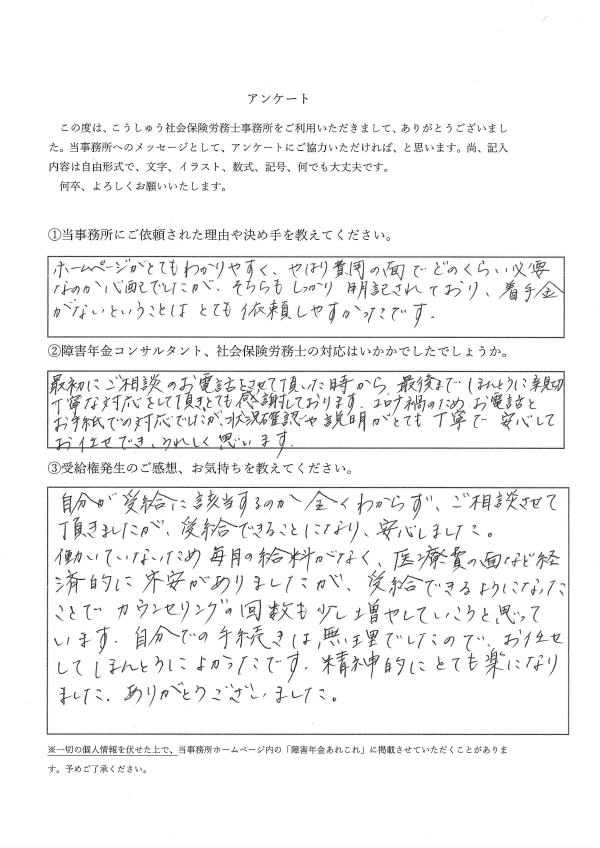 アンケート
この度は、こうしゅう社会保険労務士事務所をご利用いただきまして、ありがとうございまし
た。当事務所へのメッセージとして、アンケートにご協力いただければ、と思います。尚、記入
内容は自由形式で、文字、イラスト、数式、記号、何でも大丈夫です。
何卒、よろしくお願いいたします。
①当事務所にご依頼された理由や決め手を教えてください。
ホームページがとてもわかりやすく、やはり費用の面でどのくらい必要
なのか心配でしたが、そちらもしっかり明記されており、着手金
がないということはとても依頼しやすかったです.
②障害年金コンサルタント、社会保険労務士の対応はいかかでしたでしょうか。
最初にご相談のお電話をさせて頂いた時から、最後までほんとうに親切
丁寧な対応をして頂きとても感謝しております.コロナ禍のためお電話と
お手紙での対応でしたが、状況確認や説明がとても丁寧で安心して
お任せでき、うれしく思います.
③受給権発生のご感想、お気持ちを教えてください。
自分が受給に該当するのか全くわからず、ご相談させて
頂きましたが、受給できることになり、安心しました。
働いていないため毎月の給料がなく、医療費の面など経
済的に不安がありましたが、受給できるようになった
ことでカウンセリングの回数も少し増やしていこうと思って
います.自分での手続きは無理でしたので、お任せ
してほんとうによかったです.精神的にとても楽になり
ました.ありがとうございました。
※一切の個人情報を伏せた上で、当事務所ホームページ内の「障害年金あれこれ」に掲載させていただくことがありま
す。予めご了承ください。